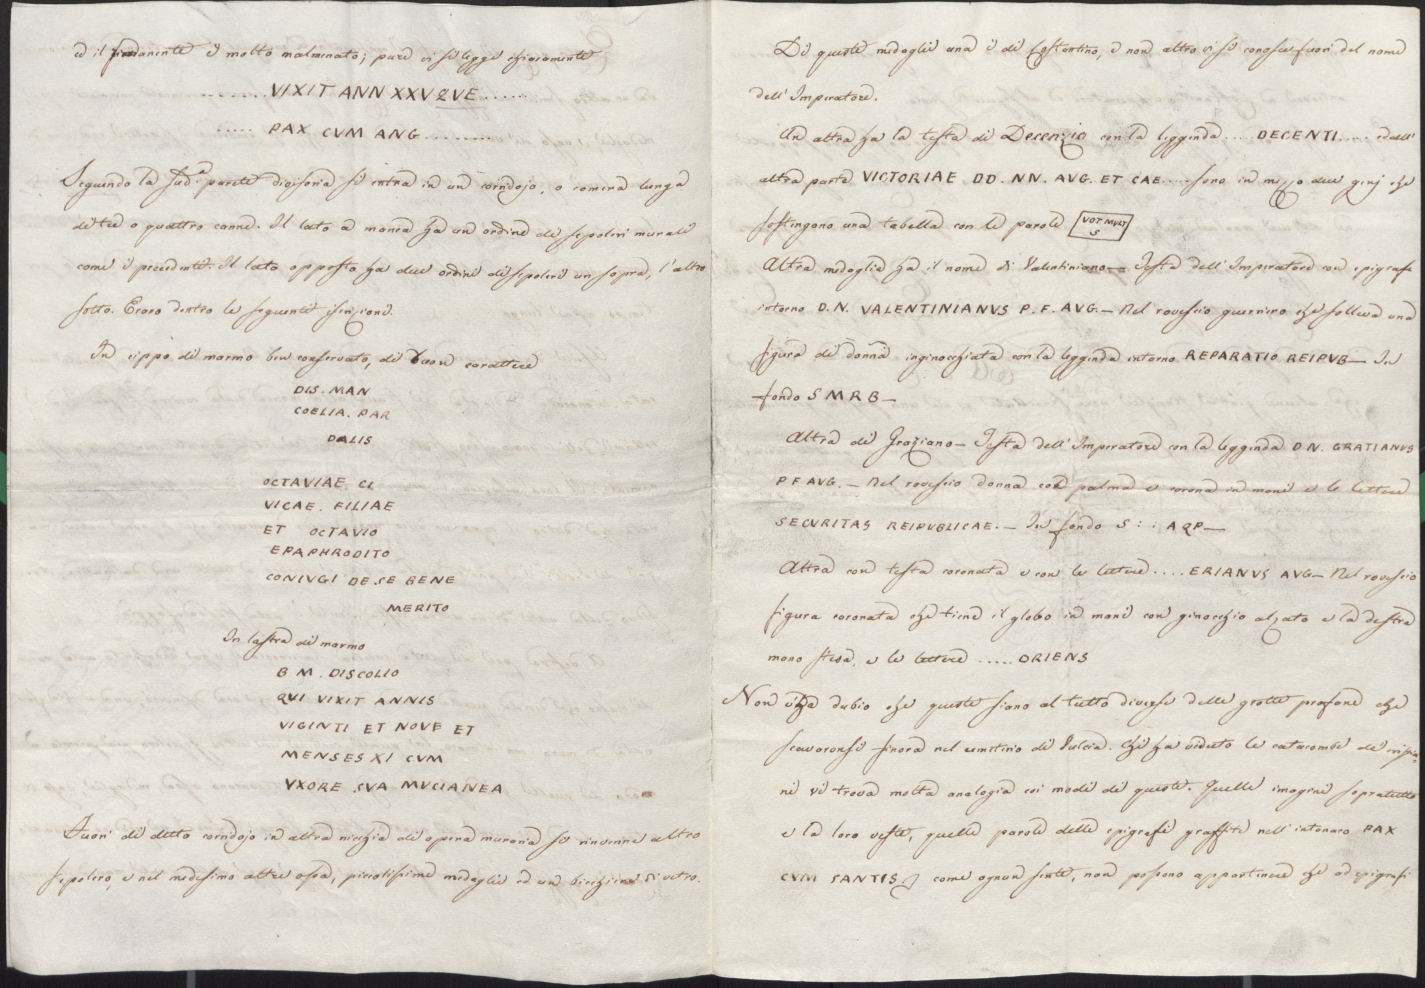 ed il rimanente è molto malminato; pure vi si legge chiaramente
........VIXIT ANN XXVQVE......
..... PAX CVM ANG.........
Seguendo la sud.a parete divisoria si entra in un corridojo, o camera lunga
di tre o quattro canne. Il lato a manca ha un ordine di sepolcri murali
come i precedenti. Il lato opposto ha due ordini di sepolcri un sopra, l'altro
sotto. Erano dentro le seguenti iscrizioni.
In cippo di marmo ben conservato, di buon carattere
DIS. MAN
COELIA. PAR
DALIS
OCTAVIAE. CL
VICAE. FILIAE
ET OCTAVIO
EPAPHRODITO
CONIVGI DE SE BENE
MERITO
In lastra di marmo
B M. DISCOLIO
QVI VIXIT ANNIS
VIGINTI ET NOVE ET
MENSES XI CVM
VXORE SVA MVCIANEA
Fuori di detto corridojo in altra nicchia di opera muraria si rinvenne altro
sepolcro, e nel medesimo altre ossa, piccolissime medaglie ed un bicchiere di vetro.
Di queste medaglie una è di Costantino, e non altro vi si conosce fuori del nome
dell'Imperatore.
Un altra ha la testa di Decenzio con la leggenda .... DECENTI.... e dall'
altra parte VICTORIAE DD. NN. AVG. ET CAE.....sono in mezzo due genj che
sostengono una tabella con le parole VOT MVLT
S
Altra medaglia ha il nome di Valentiniano— Testa dell'Imperatore con epigrafe
intorno D.N. VALENTINIANVS P.F. AVG.— Nel rovescio guerriero che solleva una
figura di donna inginocchiata con la leggenda intorno REPARATIO REIPVB— In
fondo S M R B—
Altra di Graziano— Testa dell'Imperatore con la leggenda D N. GRATIANVS
P F AVG.— Nel rovescio donna con palma e corona in mani e le lettere
SECVRITAS REIPVBLICAE.— In fondo S : : A Q P—
Altra con testa coronata e con le lettere ....ERIANVS AVG— Nel rovescio
figura coronata che tiene il globo in mani con ginocchio alzato e la destra
mano stesa, e le lettere .....ORIENS
Non v'ha dubio che queste siano al tutto diverse delle grotte profane che
scavaronsi finora nel cemeterio di Vulcia. Chi ha veduto le catacombe de' cristia-
ni vi trova molta analogia coi modi di queste. Quelle imagini sopratutto
e la loro veste, quelle parole delle epigrafi graffite nell'intonaco PAX
CVM SANTIS, come ognun sente, non possono appartenere che ad epigrafi